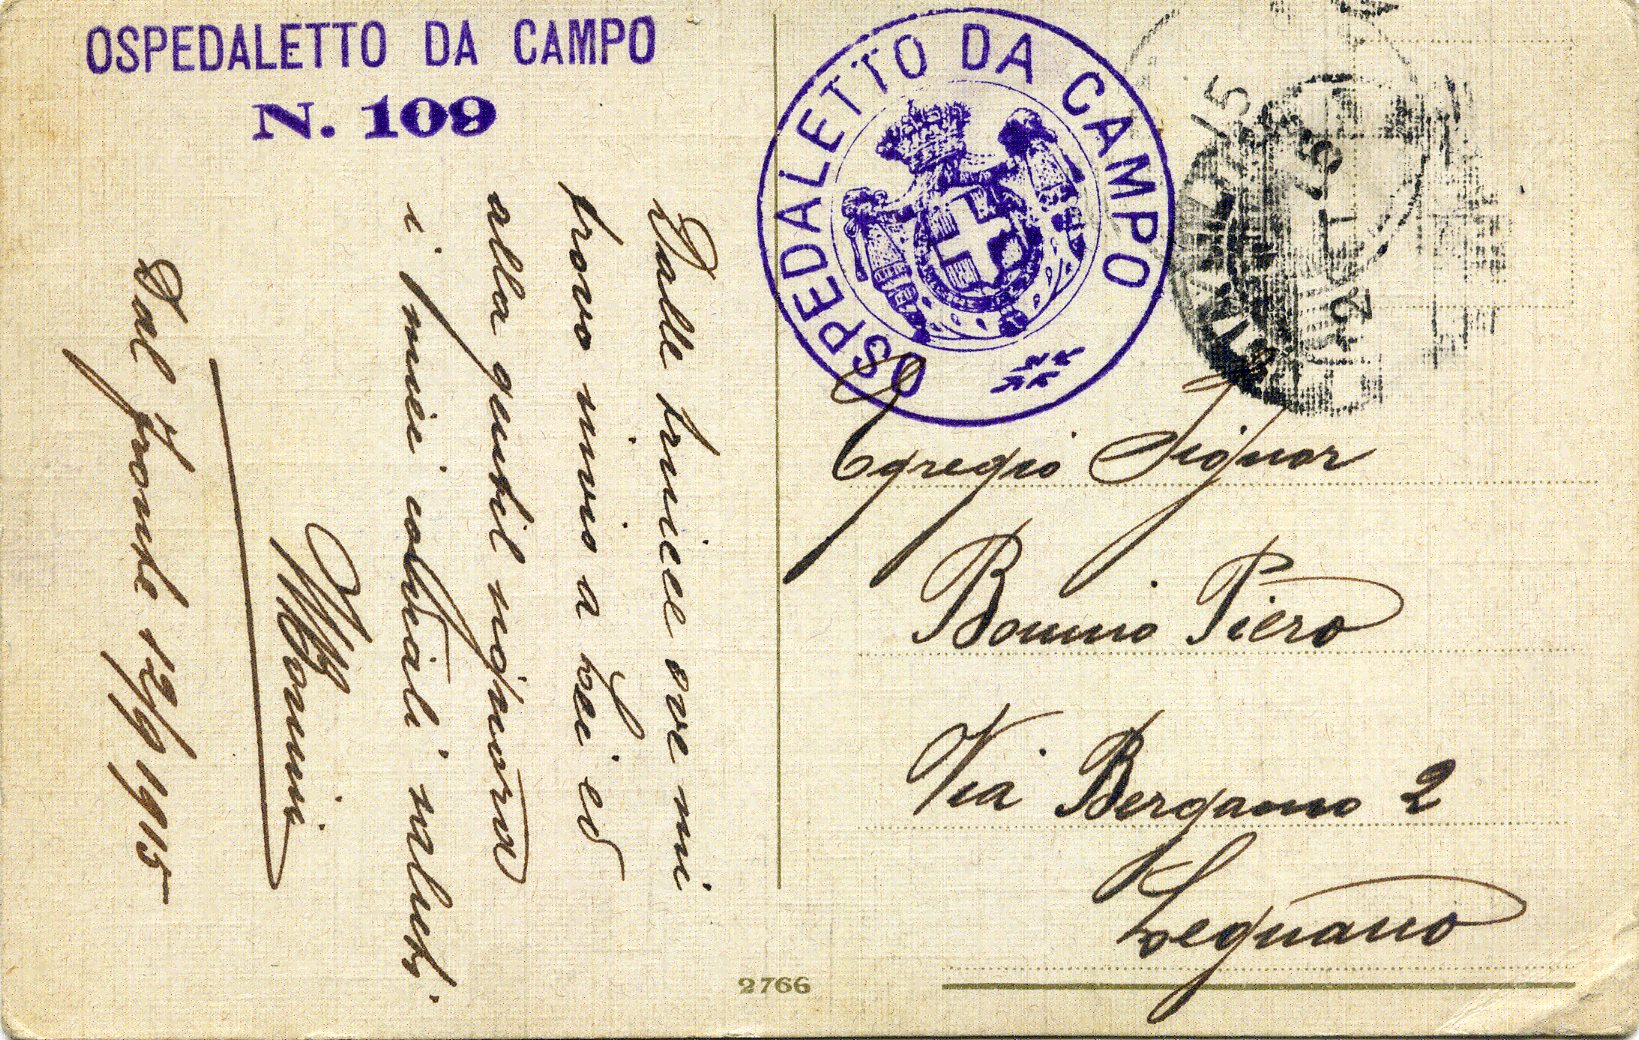 OSPEDALETTO DA CAMPO
N. 109
Dalle trincee ove mi
trovo invio a Lei ed
alla gentil signora
i miei cordiali saluti.
Dal fronte 12/9 1915
OSPEDALETTO DA CAMPO
15
Egregio Signor
Bonino Piero
Via Bergamo 2
Legnano
2766